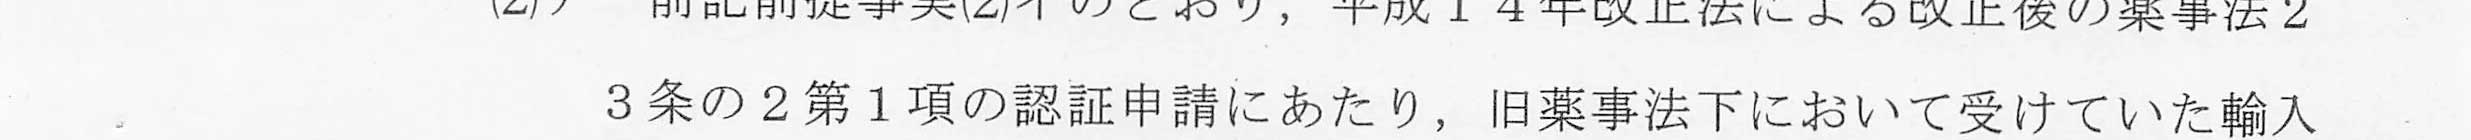 (2)ア 前記前提事実(2)イのとおり，平成１４年改正法による改正後の薬事法２
３条の２第１項の認証申請にあたり，旧薬事法下において受けていた輸入